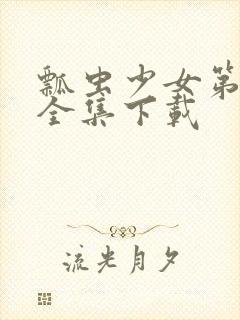 瓢虫少女第
全集下载
流光月夕